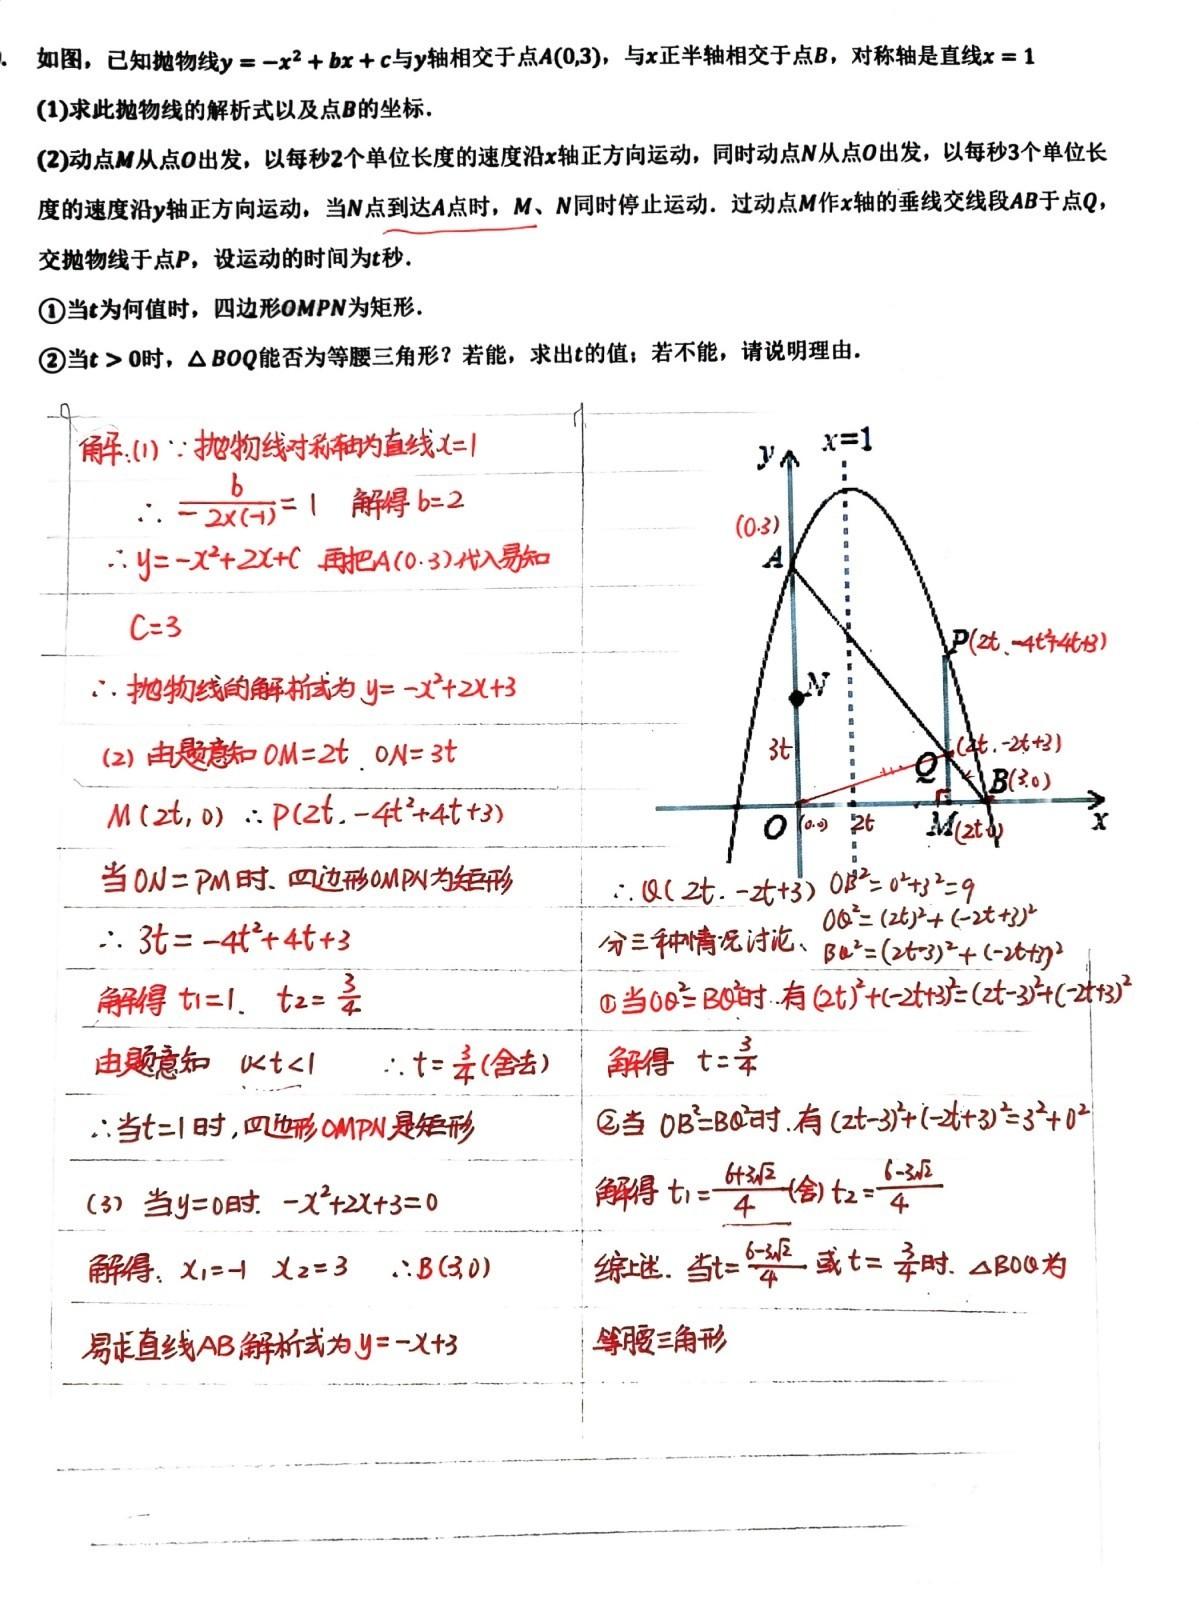 如图，已知抛物线y = −x² + bx + c与y轴相交于点A(0,3)，与x正半轴相交于点B，对称轴是直线x = 1
(1)求此抛物线的解析式以及点B的坐标．
(2)动点M从点O出发，以每秒2个单位长度的速度沿x轴正方向运动，同时动点N从点O出发，以每秒3个单位长
度的速度沿y轴正方向运动，当N点到达A点时，M、N同时停止运动．过动点M作x轴的垂线交线段AB于点Q，
交抛物线于点P，设运动的时间为t秒．
①当t为何值时，四边形OMPN为矩形．
②当t > 0时，△BOQ能否为等腰三角形？若能，求出t的值；若不能，请说明理由．
解:(1) ∵抛物线对称轴为直线x=1
∴ b/−2×(-1) = 1 解得 b=2
∴y=-x²+2x+C 再把A(0.3)代入易知
C=3
∴抛物线的解析式为 y= -x²+2x+3
(2) 由题意知 OM=2t . ON=3t
M(2t,0) ∴P(2t. -4t²+4t+3)
当ON=PM时、四边形OMPN为矩形
∴ 3t = -4t²+4t+3
解得 t₁=1. t₂= 3/4
由题意知 0<t<1 ∴t= 3/4 (舍去)
∴当t=1时,四边形OMPN是矩形
(3) 当y=0时. -x²+2x+3=0
解得. x₁=-1 x₂=3 ∴B(3,0)
易求直线AB解析式为y=-x+3
x=1
y
(0.3)
A
P(2t、-4t²+4t+3)
N
3t
(2t. -2t+3)
Q
B(3.0)
O (0.0) 2t M(2t.0) x
∴Q(2t. -2t+3) OB²=0²+3²=9
OQ²=(2t)²+(-2t+3)²
分三种情况讨论、 BQ²=(2t-3)²+(-2t+3)²
①当OQ²=BQ²时.有(2t)²+(-2t+3)²=(2t-3)²+(-2t+3)²
解得 t=3/4
②当 OB²=BQ²时.有(2t-3)²+(-2t+3)²=3²+0²
解得 t₁= 6+3√2/4 (舍) t₂= 6-3√2/4
综上述. 当t= 6-3√2/4 或 t= 3/4时. △BOQ为
等腰三角形